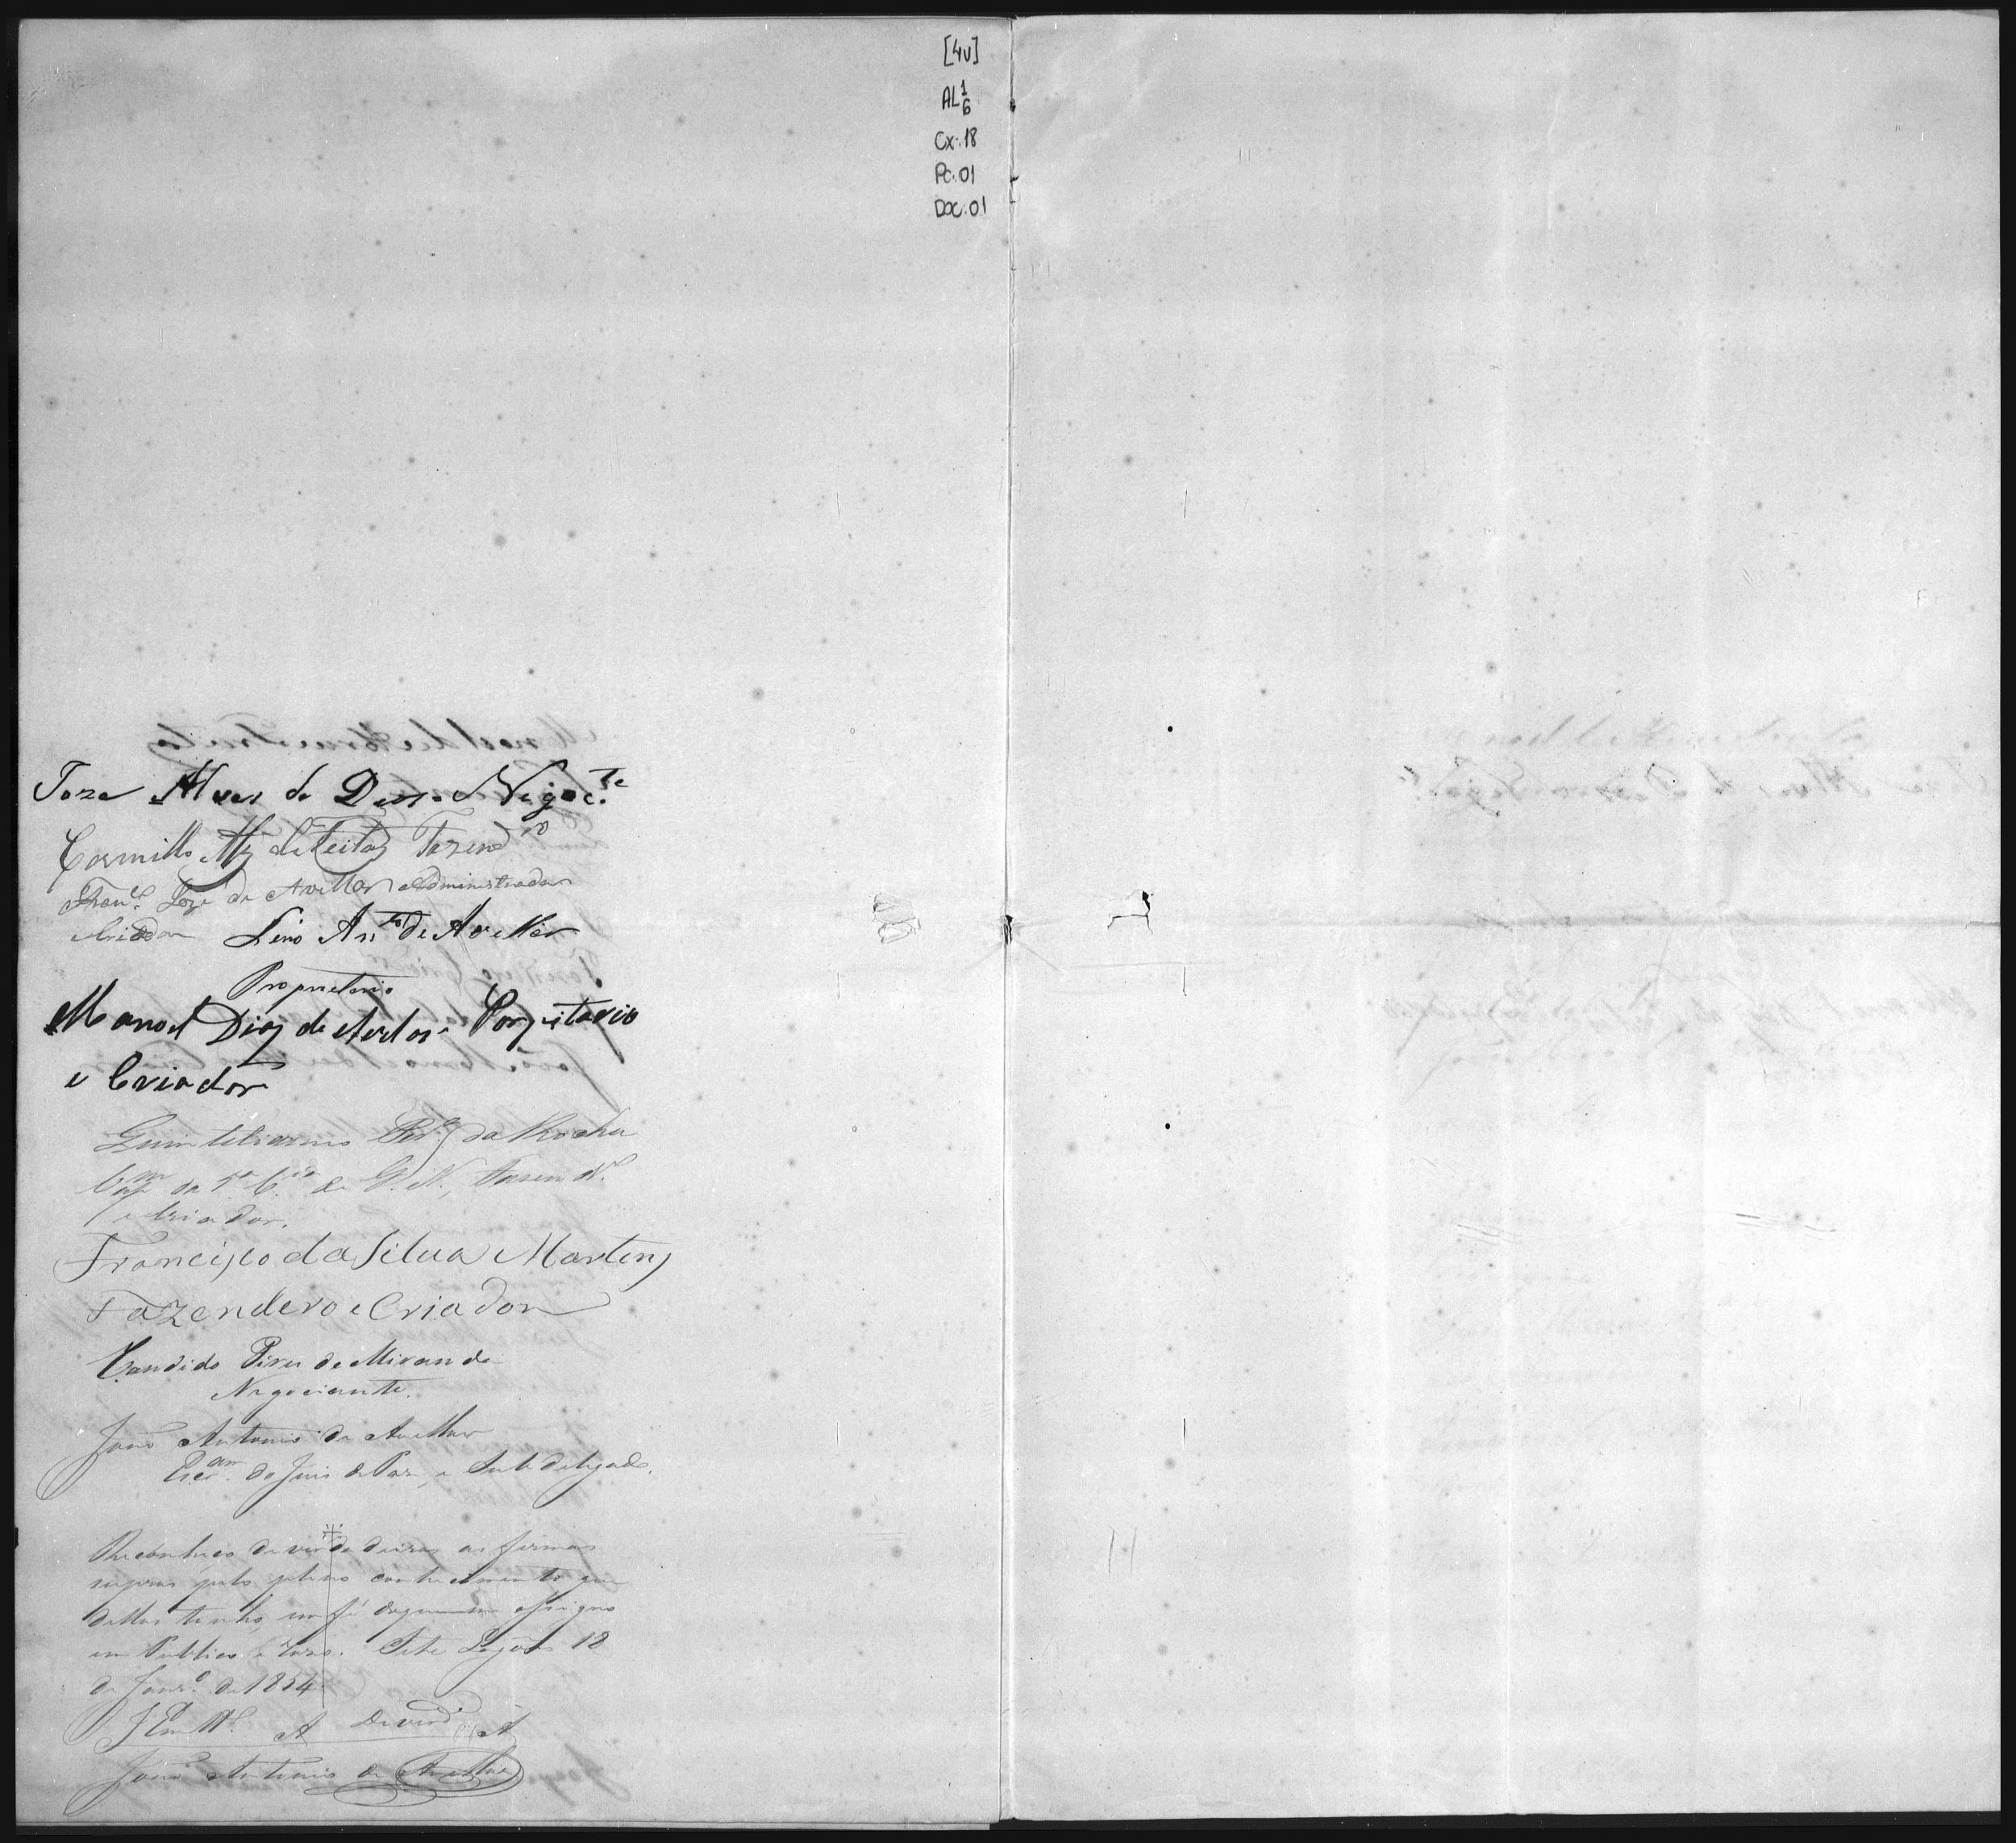 [4v]
AL 1/6
Cx. 18
Pc. 01
Doc. 01
Joze Alves de Negoc.te
Camillo Alz de Feitas Fazendro
Franco Joze de Avellar Administrador
e Criador Lino Anto de Avellar
Proprietario
Manoel Diaz de Porpitario
e Criador
Quintiliano da Rocha
Cap.am da 1.a C.ia de G. N., Fazendro
e Criador.
Francisco da Silva Martins
Fazendero e Criador
Candido Pires de Miranda
Negociante.
João Antonio de Avellar
Escam. do Juis de Paz, e Subdelegado.
Reconheço de verdadeiras as firmas
supras pelo pleno conhecimento que
dellas tenho, em fé do que me assigno
em Publico e razo. Sete Lagoas 18
de Janro. de 1854
Em
João Antonio de Avellar